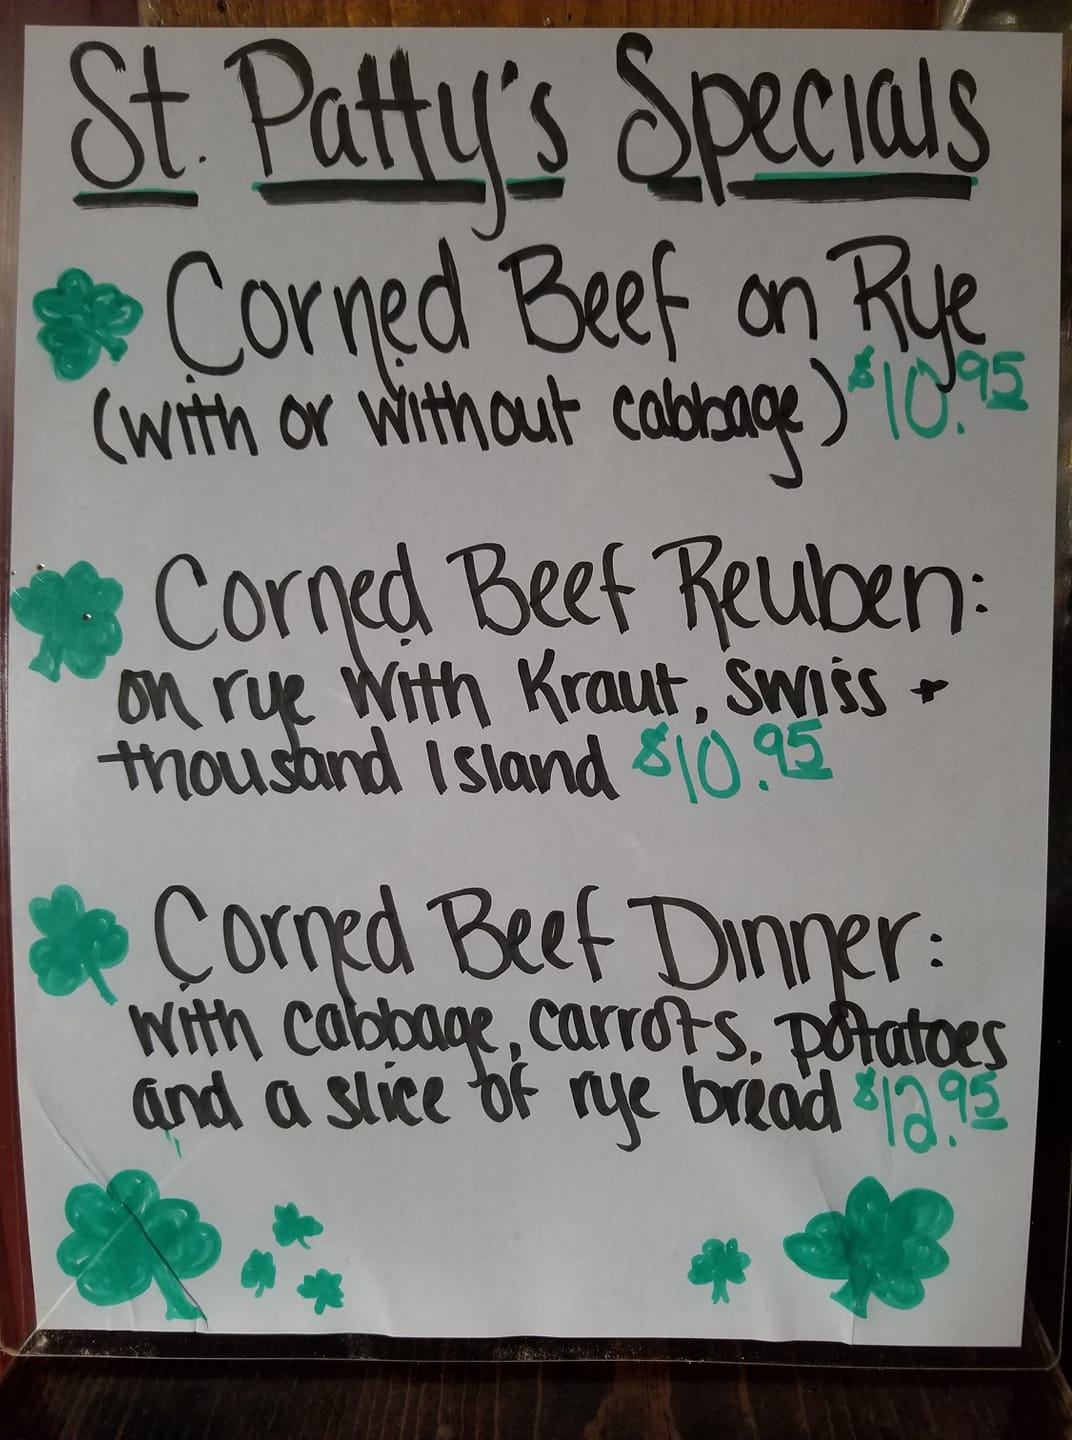 St. Patty's Specials
Corned Beef on Rye
(with or without cabbage) $10.95
Corned Beef Reuben:
on rye with Kraut, Swiss +
thousand Island $10.95
Corned Beef Dinner:
with cabbage, carrots, potatoes
and a slice of rye bread $12.95